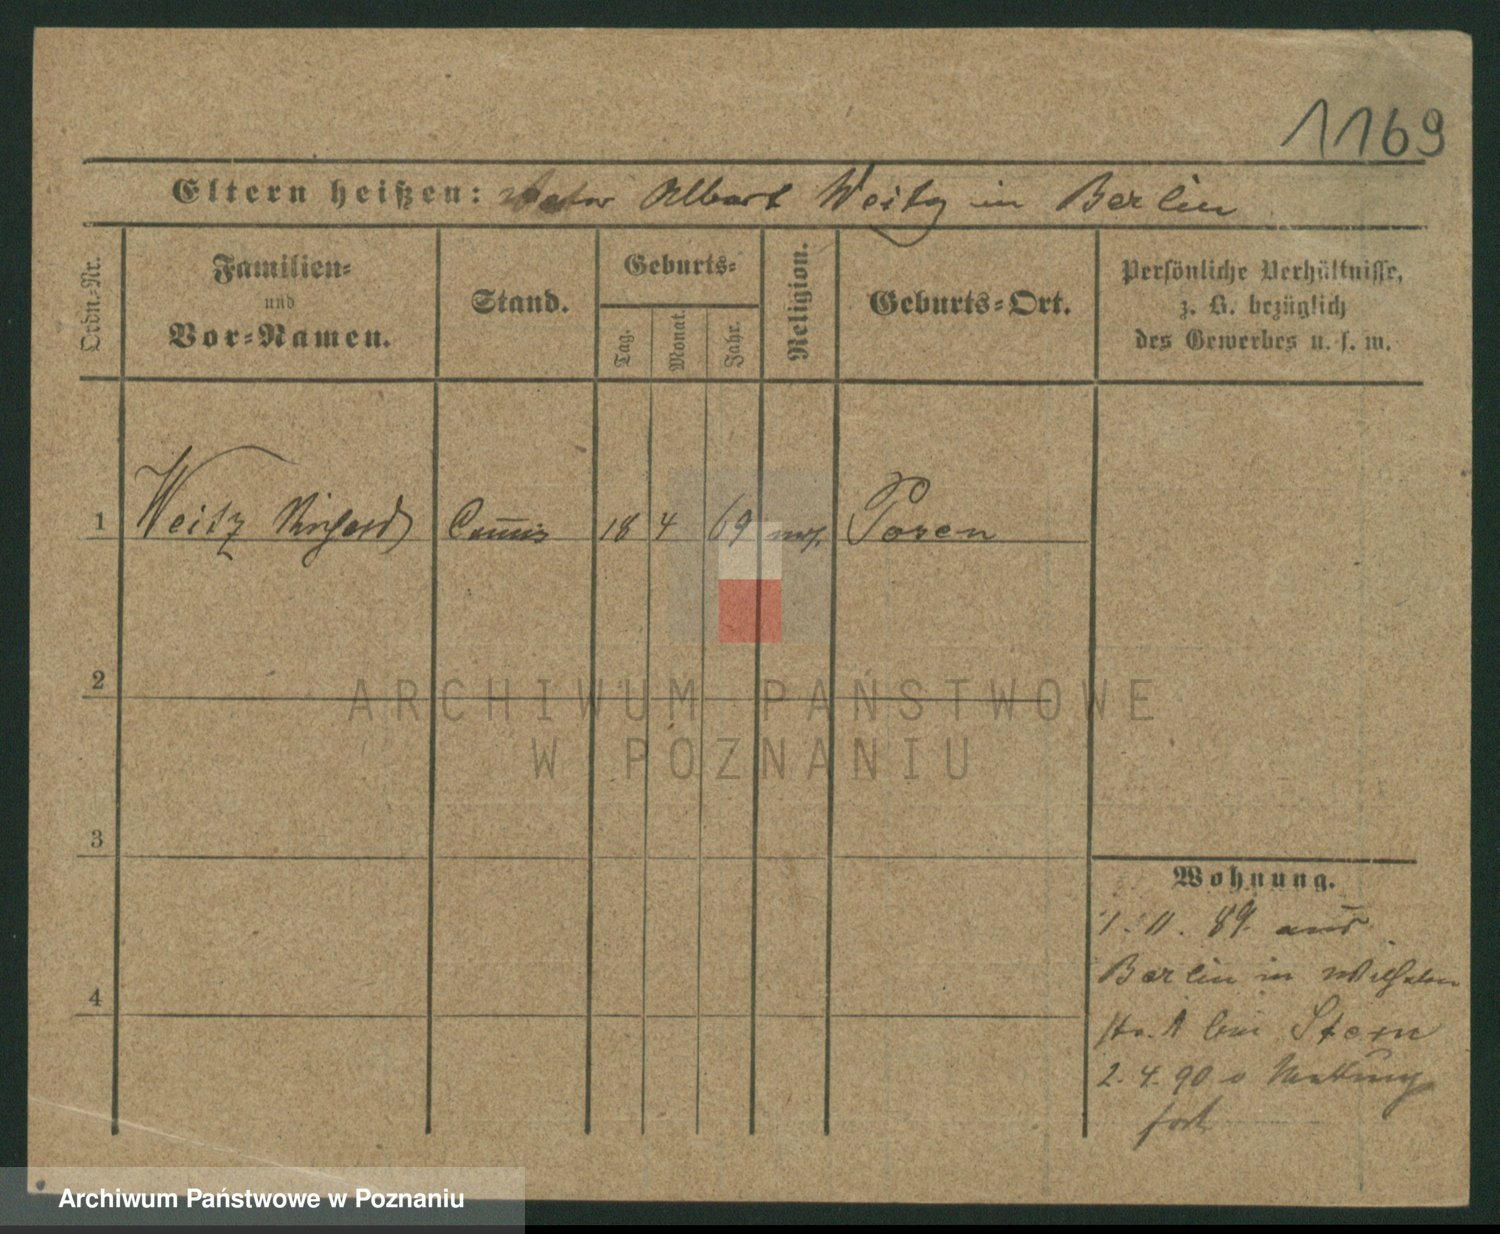 1169
Eltern heißen: Vater Albert Weitz in Berlin
Ordn.-Nr.
Familien-
und
Vor-Namen.
Stand.
Geburts-
Tag.
Monat.
Jahr.
Religion.
Geburts-Ort.
Persönliche Verhältnisse,
z. B. bezüglich
des Gewerbes u. s. w.
1 Weitz Richard Commis 18 4 69 Posen
2
3
4
ARCHIWUM PAŃSTWOWE
W POZNANIU
Wohnung.
1. 11. 89. aus
Berlin in Wilhelm
str. bei Stern
2. 4. 90 o Meldung
fort
Archiwum Państwowe w Poznaniu